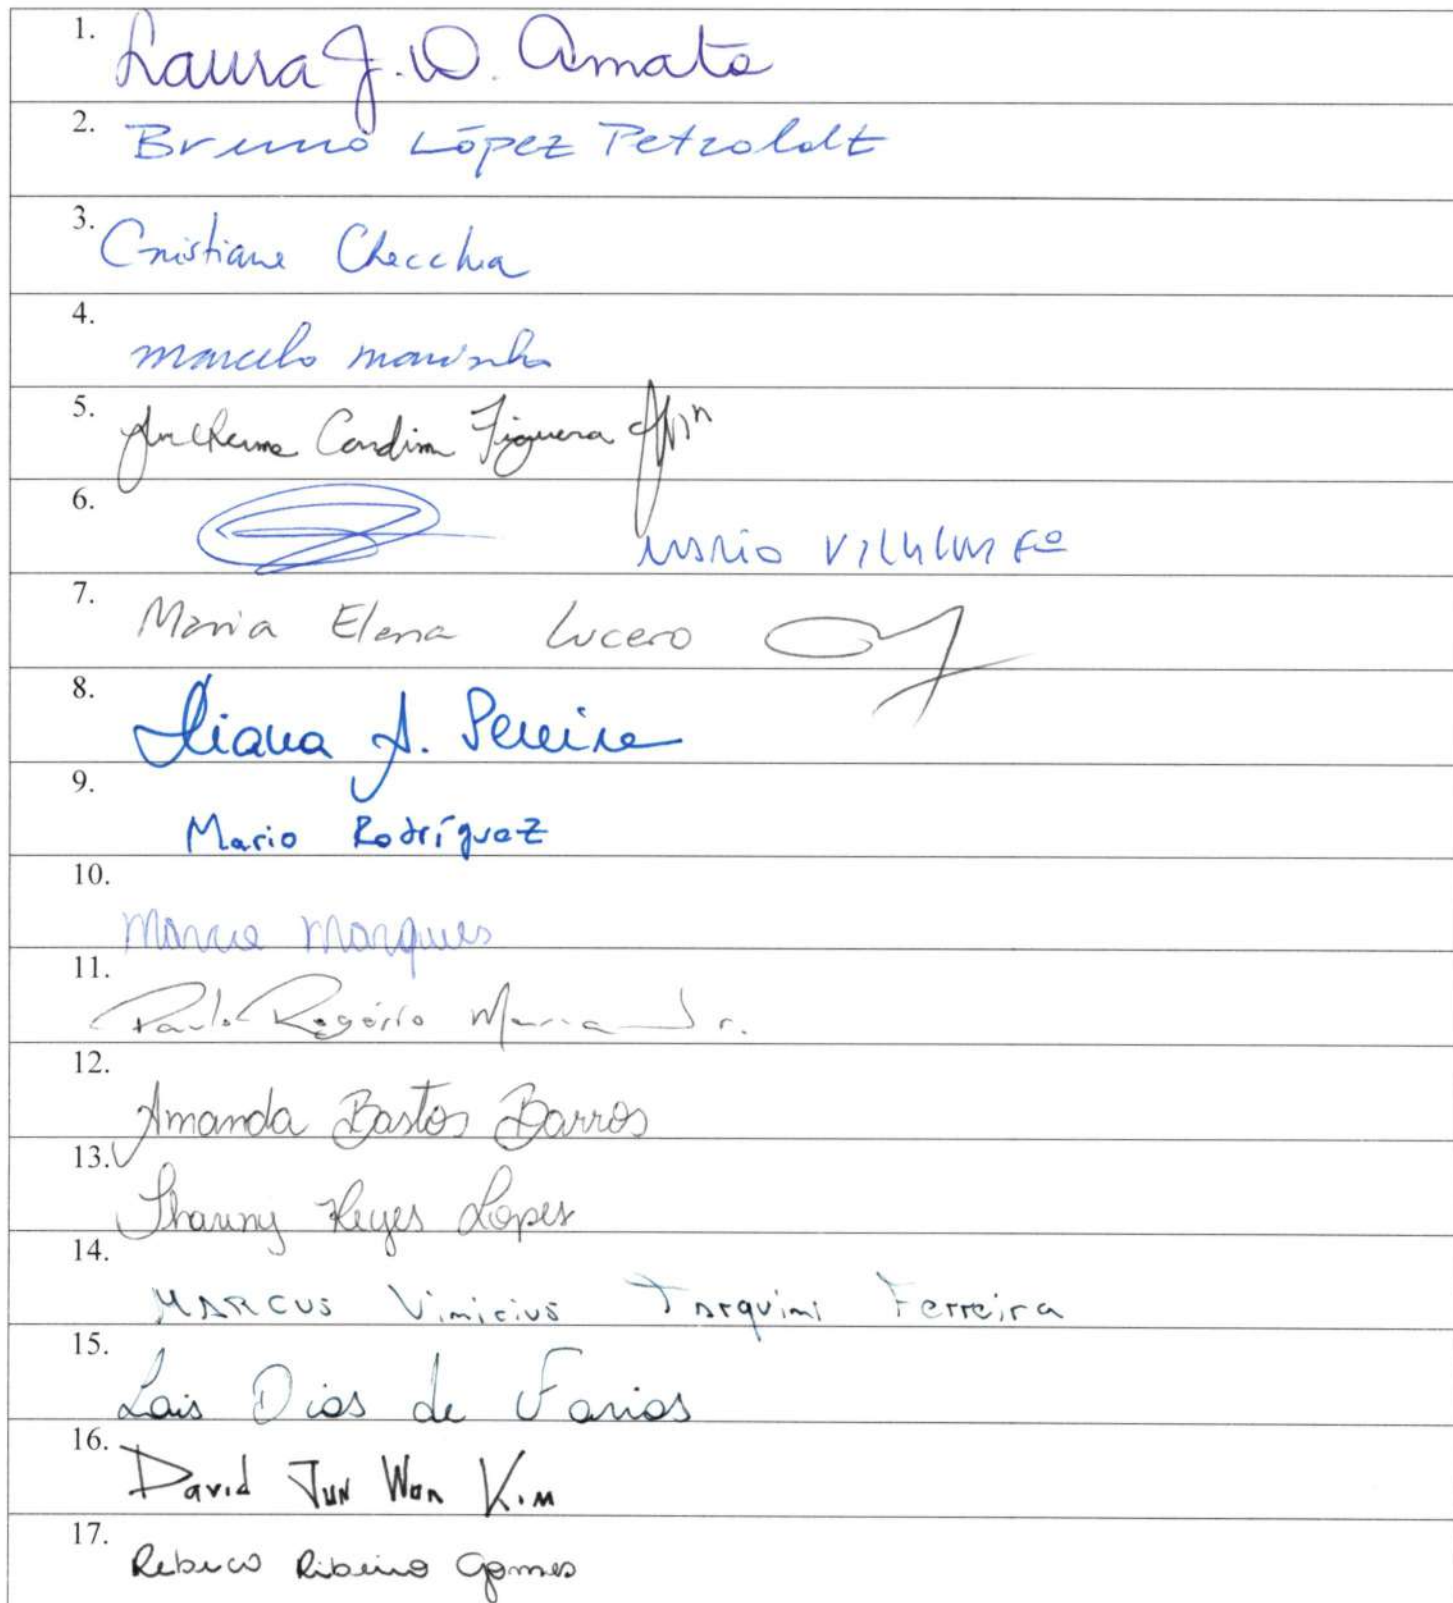 1. Laura J. D. Amato
2. Bruno López Petzoldt
3. Cristiane Checchia
4. marcelo marinho
5. Guilherme Cardim Figuera
6. Mario Villalva Fº
7. Maria Elena Lucero
8. Diana A. Pereira
9. Mario Rodríguez
10. Marcia Marques
11. Paulo Rogério Maria Jr.
12. Amanda Bastos Barros
13. Reyes Lopes
14. MARCUS Vinicius Tarquini Ferreira
15. Lais Dias de Farias
16. David Jun Won Kim
17. Rebeca Ribeiro Gomes